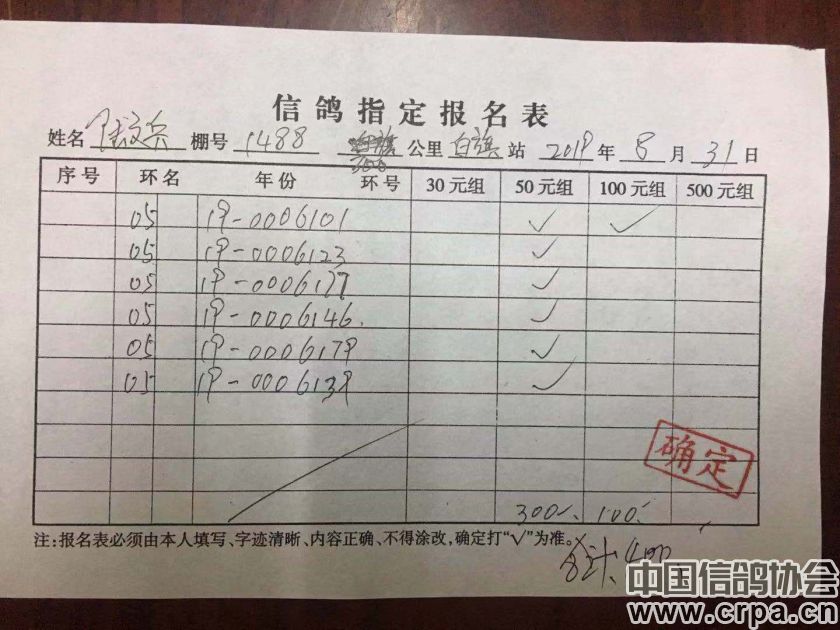 信鸽指定报名表
姓名 棚号 1488 300 公里 白旗 站 2019 年 8 月 31 日
序号 环名 年份 环号 30元组 50元组 100元组 500元组
05 19-0006101 ✓ ✓
05 19-0006123 ✓
05 19-0006177 ✓
05 19-0006146. ✓
05 19-0006179 ✓
05 19-0006139 ✓
确定
300 100
注:报名表必须由本人填写、字迹清晰、内容正确、不得涂改,确定打“√”为准。
合计:400
中国信鸽协会
www.crpa.cn